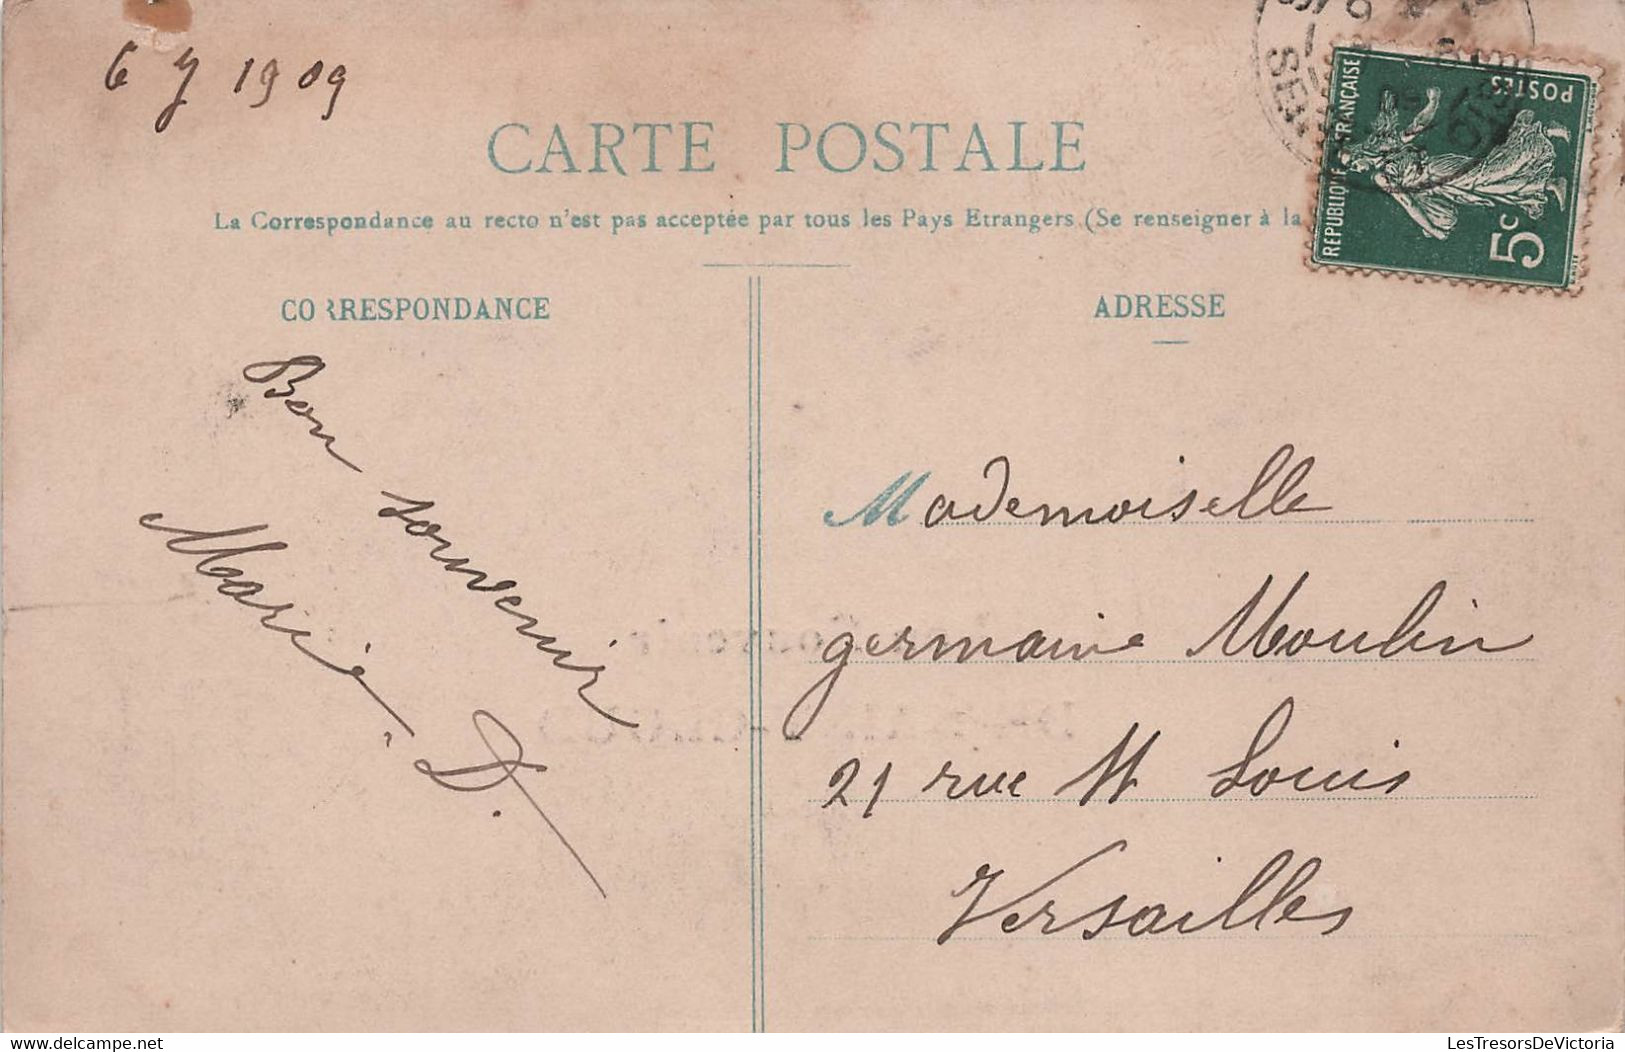 6 7 1909
CARTE POSTALE
La Correspondance au recto n'est pas acceptée par tous les Pays Etrangers (Se renseigner à la
CORRESPONDANCE
Bon souvenir
Marie. D.
ADRESSE
Mademoiselle
germaine Moulin
21 rue St Louis
Versailles
REPUBLIQUE FRANÇAISE
POSTES
5c
LesTresorsDeVictoria
https://www.delcampe.net